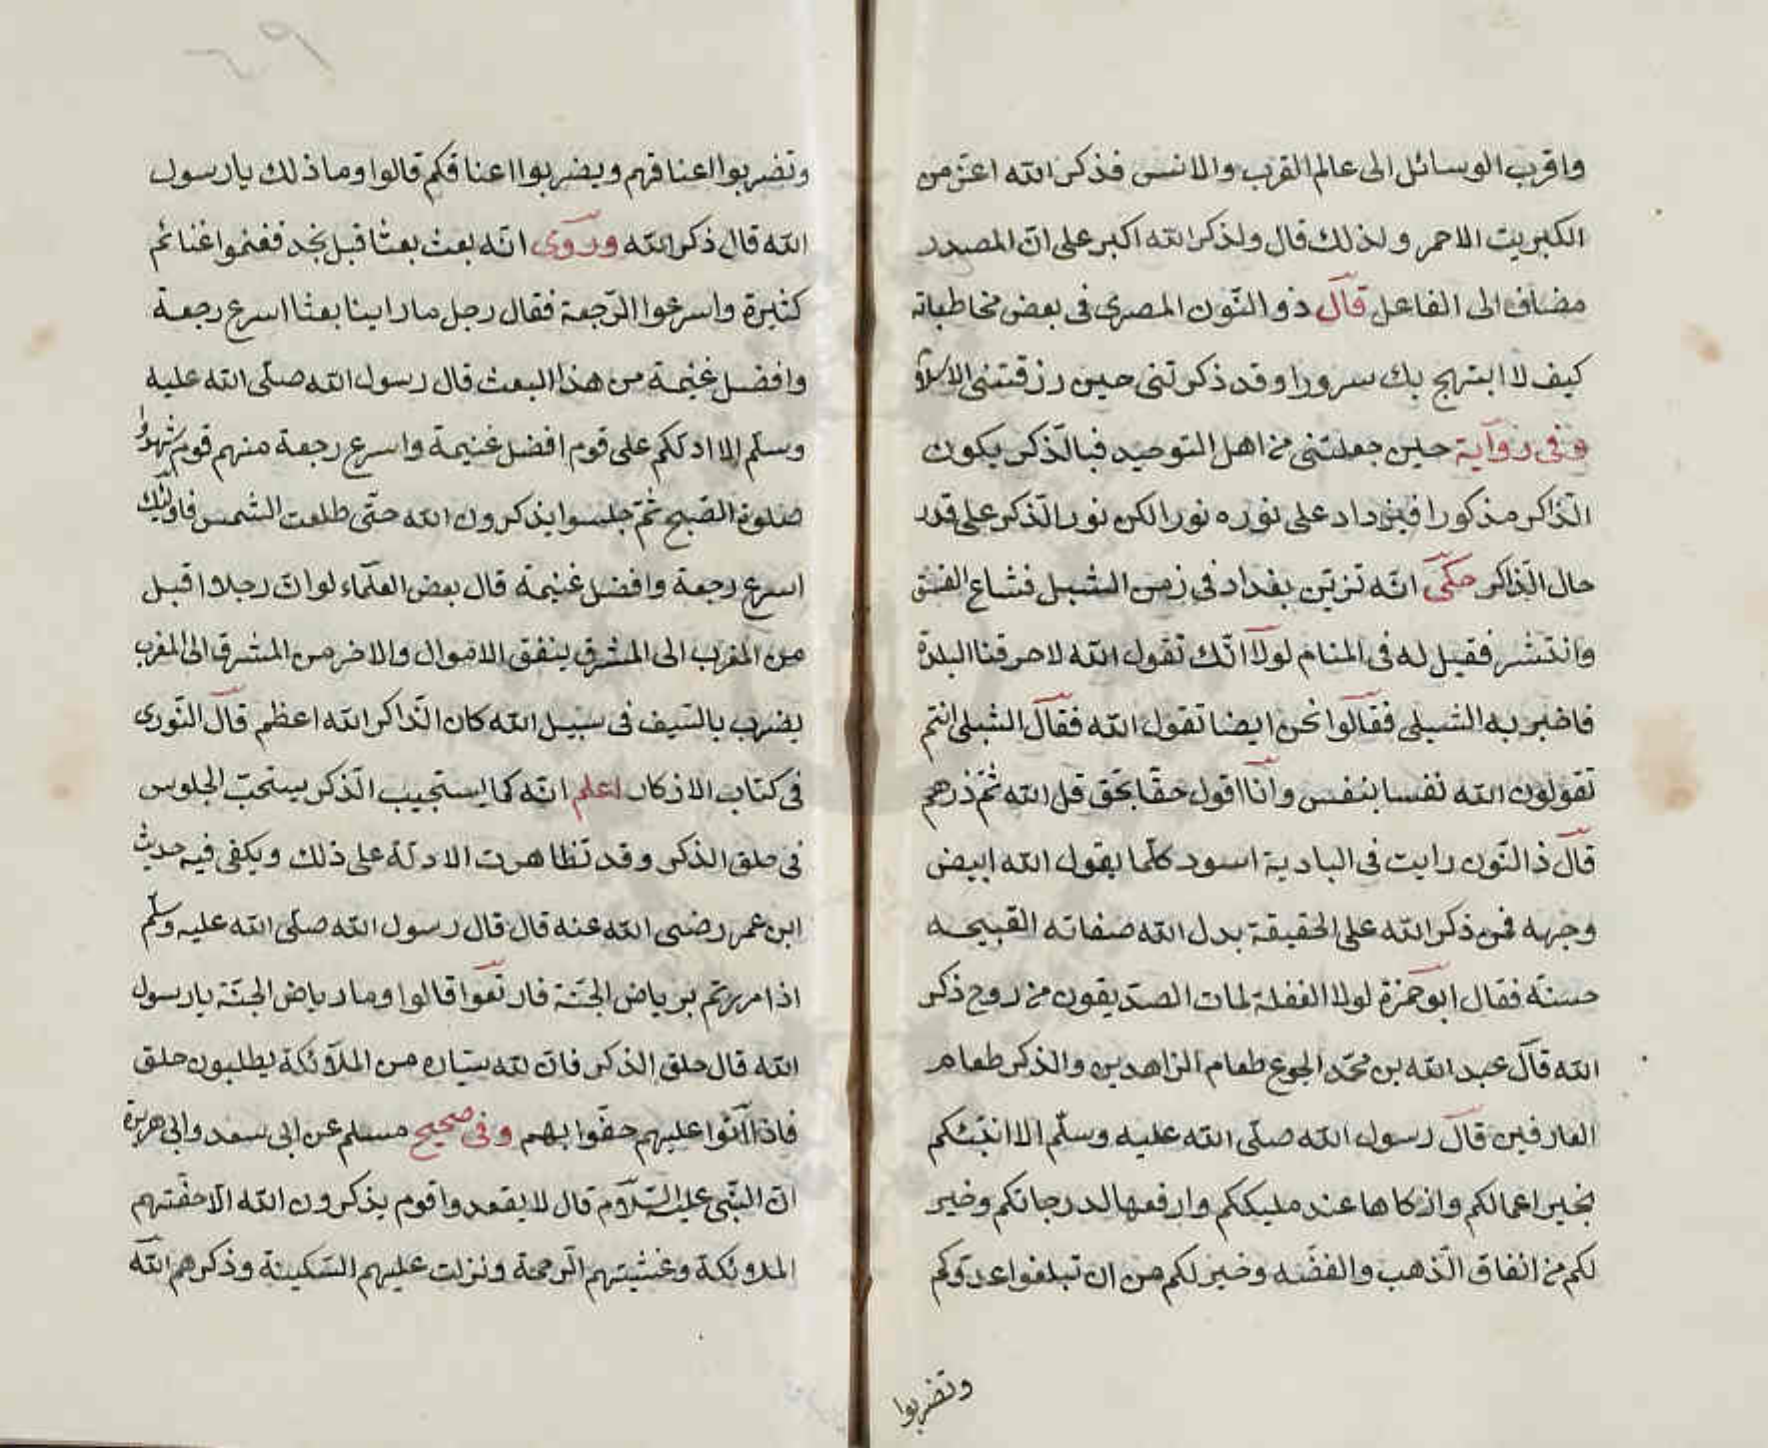 واقرب الوسائل الى عالم القرب والانس فذكر الله اعز من
الكبريت الاحمر ولذلك قال ولذكر الله اكبر على ان المصدر
مضاف الى الفاعل قال ذو النون المصرى فى بعض مخاطباته
كيف لا ابتهج بك سرورا وقد ذكرتنى حين رزقتنى الاسلام
وفى رواية حين جعلتنى من اهل التوحيد فبالذكر يكون
الذاكر مذكورا فيزداد على نوره نورا لكن نور الذكر على قدر
حال الذاكر حكى انه تزين بغداد فى زمن الشبل فشاع الفسق
وانتشر فقيل له فى المنام لولا انك تقول الله لاحرقنا البلدة
فاخبر به الشبلى فقالوا نحن ايضا نقول الله فقال الشبلى انتم
تقولون الله نفسا بنفس وانا اقول حقا بحق قل الله ثم ذرهم
قال ذا النون رايت فى البادية اسود كلما يقول الله ابيض
وجهه فمن ذكر الله على الحقيقة بدل الله صفاته القبيحه
حسنة فقال ابو حمزة لولا الغفلة لمات الصديقون من روح ذكر
الله قال عبد الله بن محمد الجوع طعام الزاهدين والذكر طعام
العارفين قال رسول الله صلى الله عليه وسلم الا انبئكم
بخير اعمالكم وازكاها عند مليككم وارفعها لدرجاتكم وخير
لكم من انفاق الذهب والفضه وخير لكم من ان تبلغوا عدوكم
وتضربوا
وتضربوا اعناقهم ويضربوا اعناقكم قالوا وما ذلك يا رسول
الله قال ذكر الله وروى انه بعث بعثا قبل نجد فغنموا غنائم
كثيرة واسرعوا الرجعة فقال رجل ما راينا بعثا اسرع رجعة
وافضل غنيمة من هذا البعث قال رسول الله صلى الله عليه
وسلم الا ادلكم على قوم افضل غنيمة واسرع رجعة منهم قوم شهدوا
صلوة الصبح ثم جلسوا يذكرون الله حتى طلعت الشمس فاولئك
اسرع رجعة وافضل غنيمة قال بعض العلماء لو ان رجلا اقبل
من المغرب الى المشرق ينفق الاموال والاخر من المشرق الى المغرب
يضرب بالسيف فى سبيل الله كان الذاكر الله اعظم قال النورى
فى كتاب الاذكار اعلم انه كما يستجيب الذكر يستحب الجلوس
فى حلق الذكر وقد تظاهرت الادلة على ذلك ويكفى فيه حديث
ابن عمر رضى الله عنه قال قال رسول الله صلى الله عليه وسلم
اذا مررتم برياض الجنة فارتعوا قالوا وما رياض الجنة يا رسول
الله قال حلق الذكر فان لله سياره من الملائكة يطلبون حلق
فاذا اتوا عليهم حفوا بهم وفى صحيح مسلم عن ابى سعد وابى هريرة
ان النبى عليه السلام قال لا يقعدوا قوم يذكرون الله الا حفتهم
الملائكة وغشيتهم الرحمة ونزلت عليهم السكينة وذكرهم الله